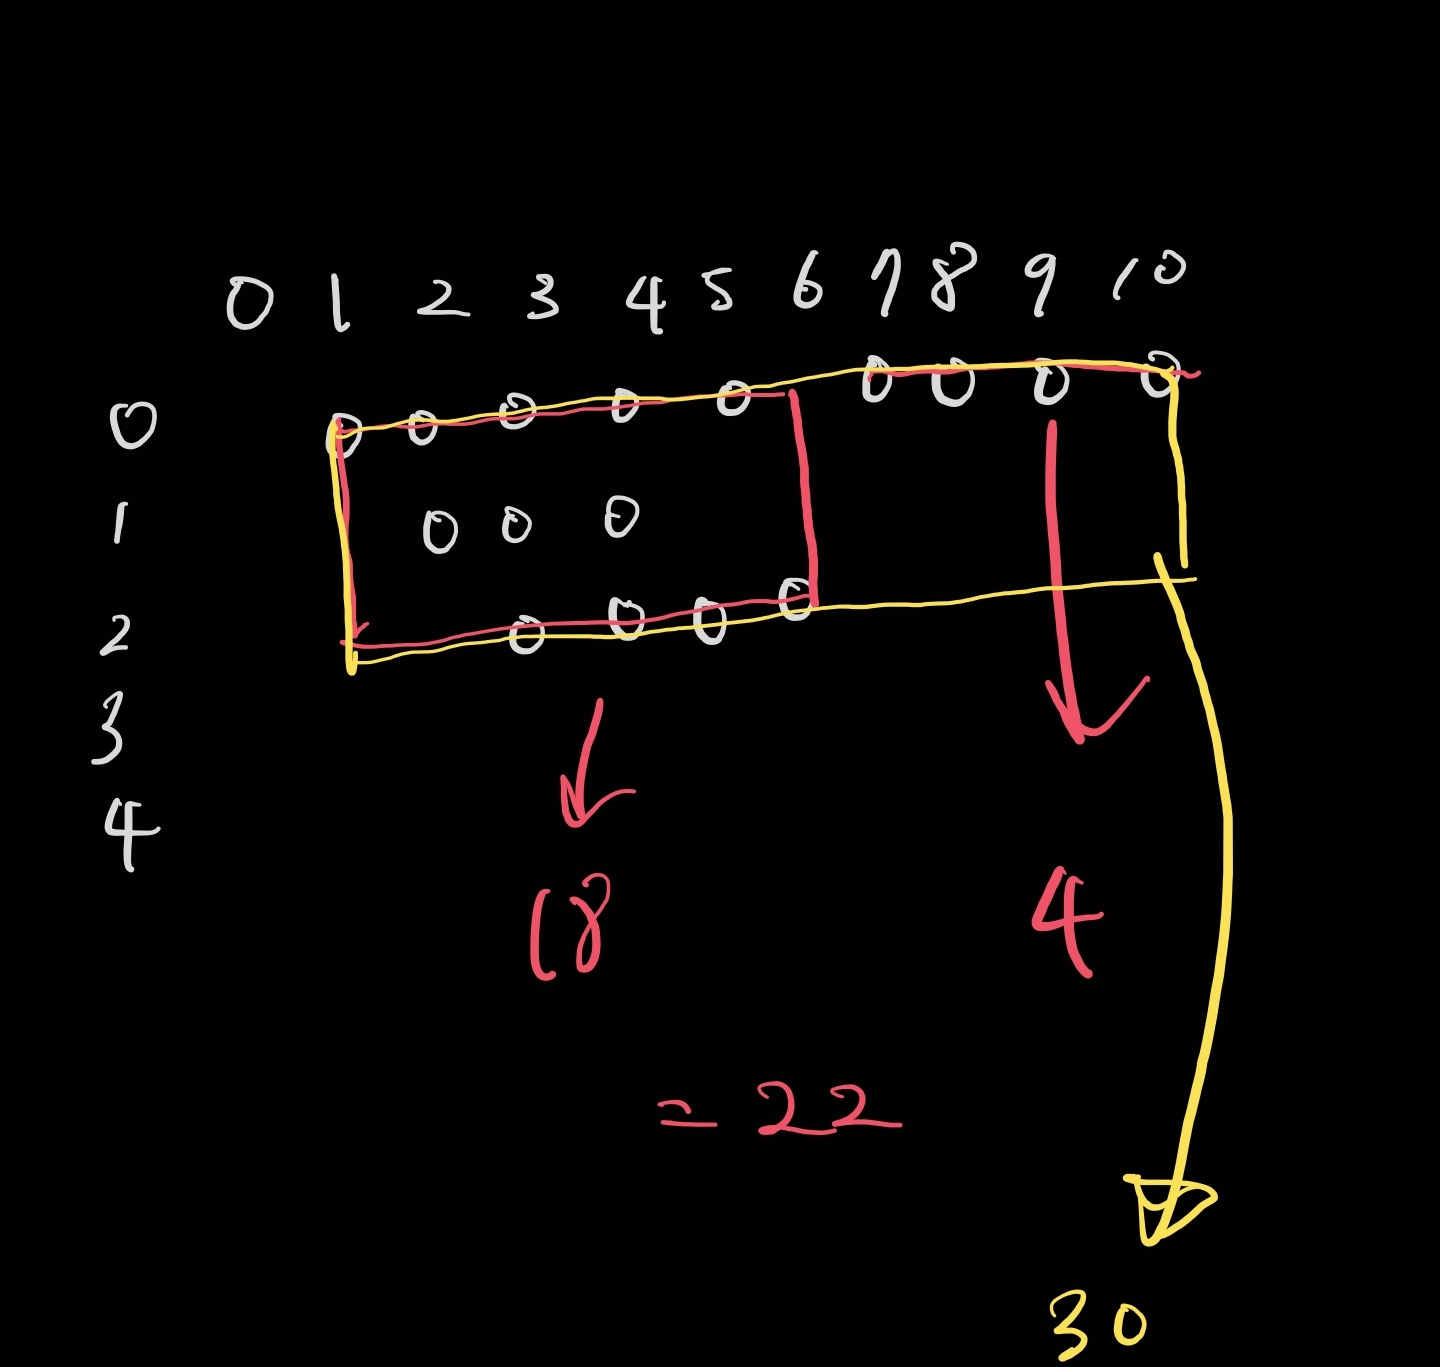 0 1 2 3 4 5 6 7 8 9 10
0 0 0 0 0 0 0 0 0 0
1 0 0 0
2 0 0 0 0
3
4
18 4
= 22
30